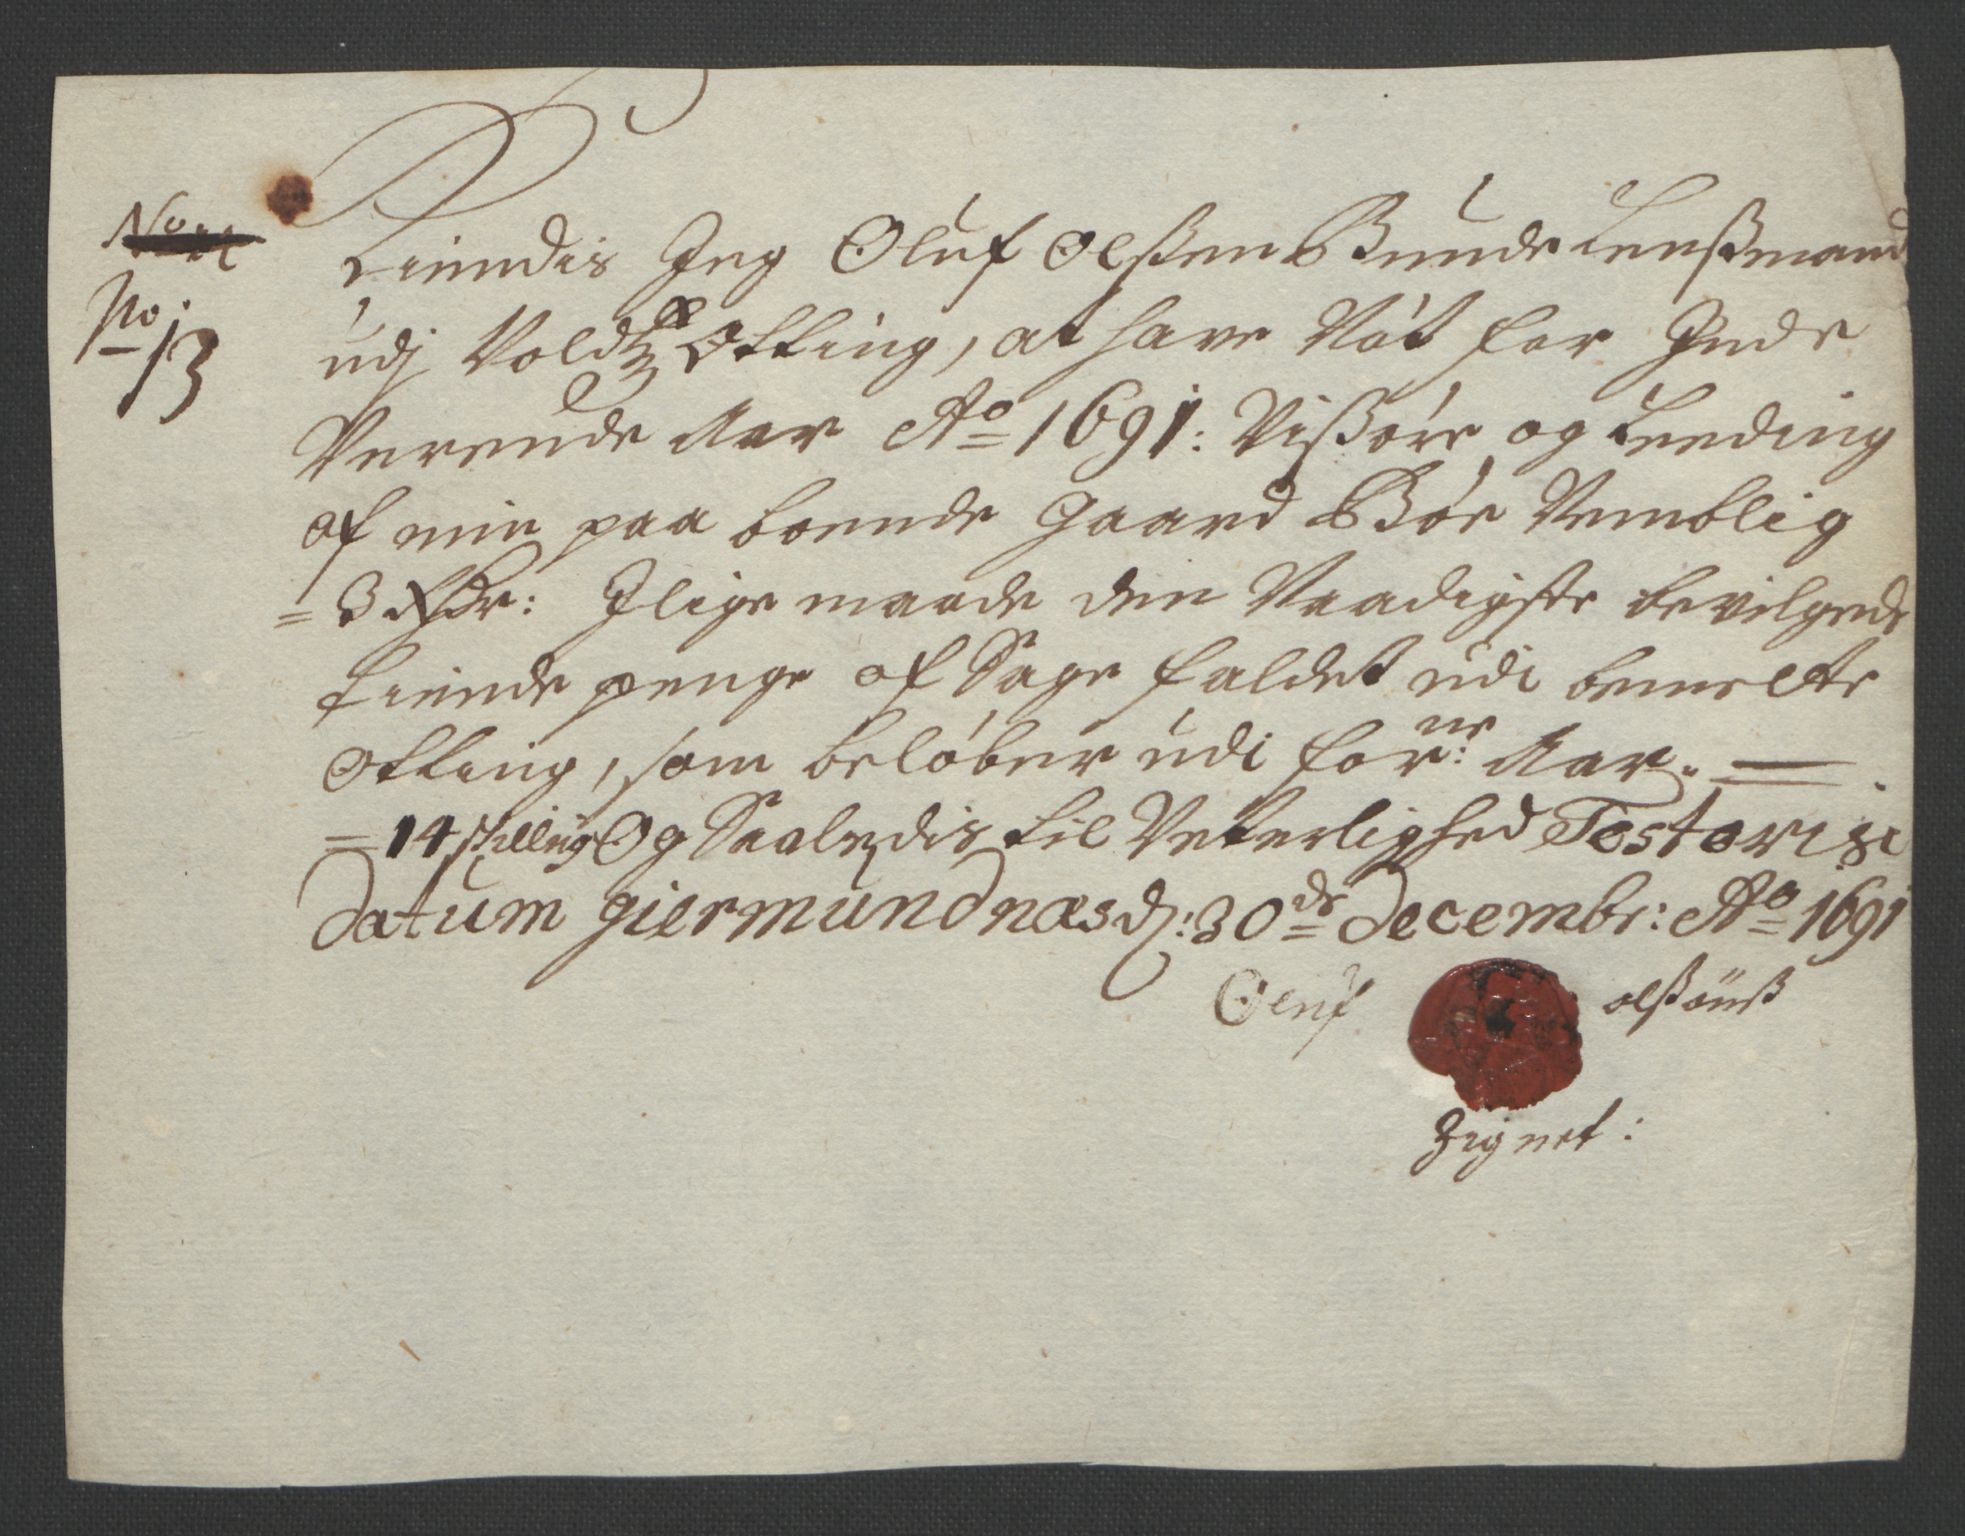 No
No.
13
Kiendis Jeg Oluf Olßen Bunde Lenßmand
udj Voldtz Otting, at have Nöt for Inde
Verende Aar Ao 1691: Vißöre og Leeding
af min paa boende Gaard Böe Nemblig
= 3 Rdr: Ilige maade den Naadigste bevilgede
tiende penge af Sage faldet udi bemelte
Otting, som belöber udi forne: Aar. —
= 14 skilling Og Saaledis til Veterlighed Testerer
Datum giermundnæs d: 30de Decembr: Ao 1691
Oluf olßönß
Zignet: